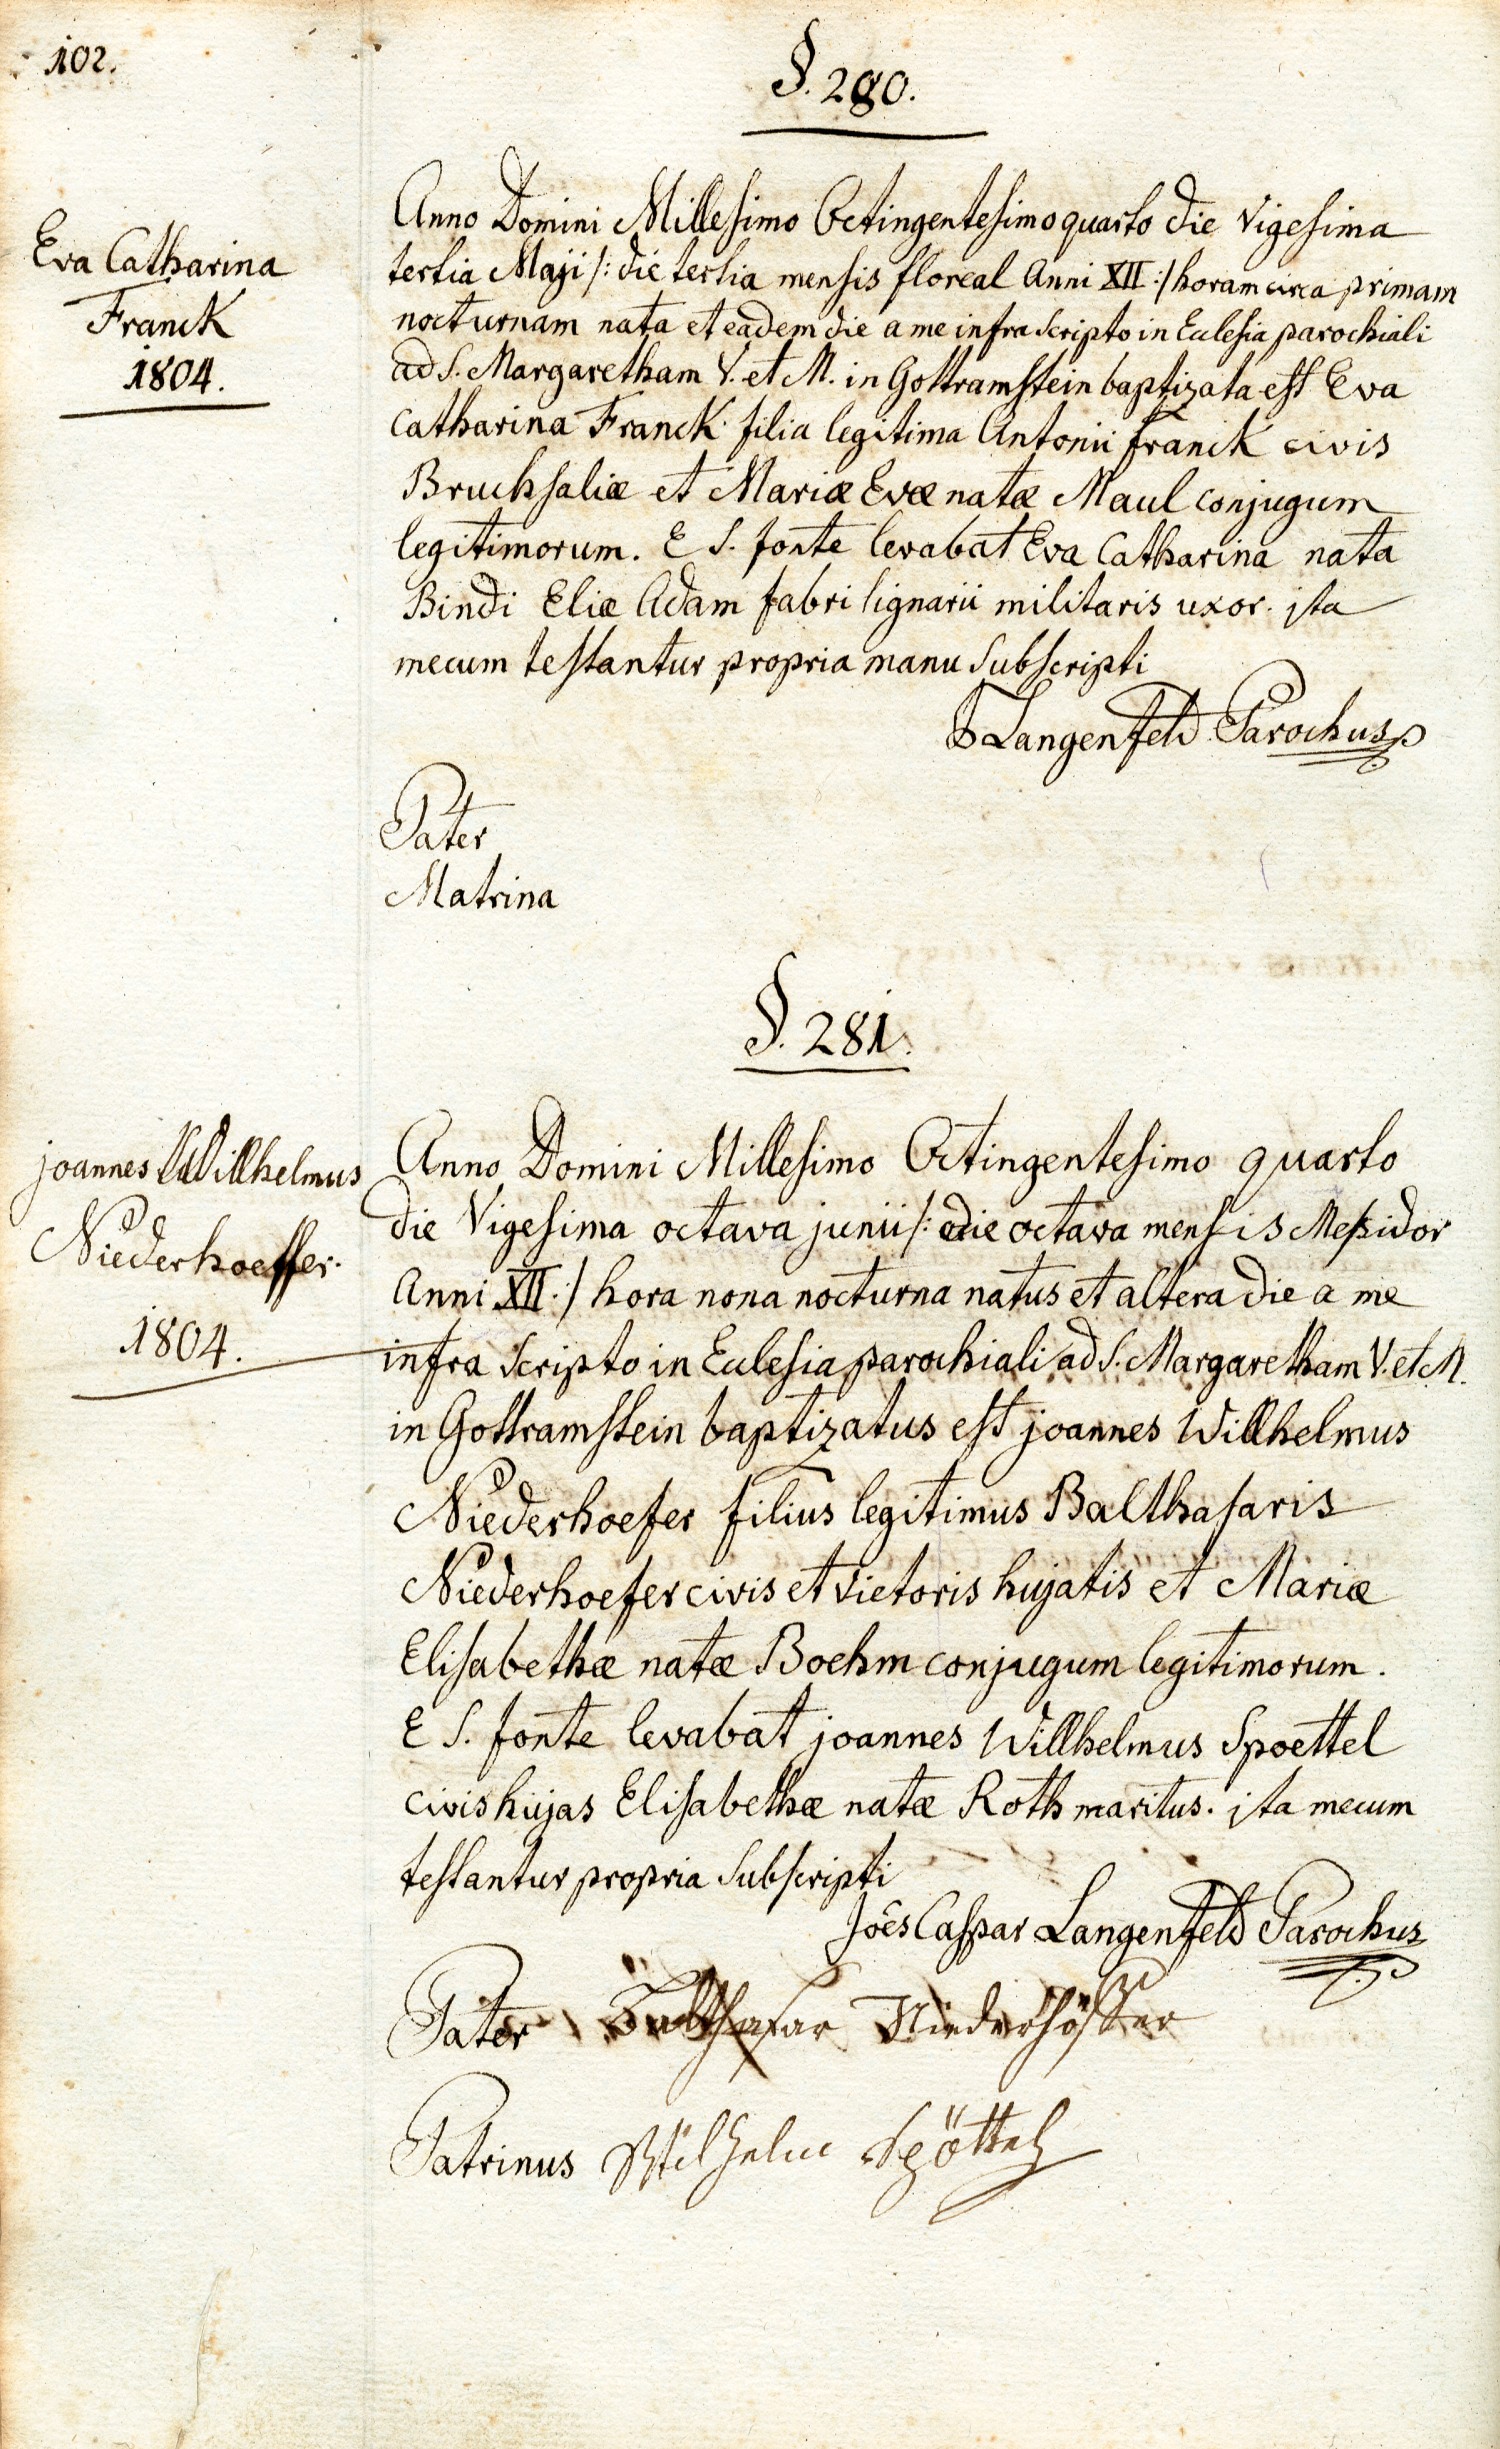 102.
§. 280.
Eva Catharina
Franck
1804.
Anno Domini Millesimo Octingentesimo quarto die Vigesima
tertia Maji /: die tertia mensis floreal Anni XII :/ horam circa primam
nocturnam nata et eadem die a me infra scripto in Eclesia parochiali
ad S. Margaretham V. et M. in Gottramstein baptizata est Eva
Catharina Franck filia legitima Antonii Franck civis
Bruchsaliæ et Mariæ Evæ natæ Maul conjugum
legitimorum. E S. fonte levabat Eva Catharina nata
Bindi Eliæ Adam fabri lignarii militaris uxor. ita
mecum testantur propria manu subscripti
Langenfeld Parochus
Pater
Matrina
§. 281.
joannes Willhelmus
Niederhoeffer.
1804.
Anno Domini Millesimo Octingentesimo quarto
die Vigesima octava junii /: die octava mensis Meßidor
Anni XII :/ hora nona nocturna natus et altera die a me
infra scripto in Eclesia parochiali ad S. Margaretham V. et M.
in Gottramstein baptizatus est joannes Willhelmus
Niederhoefer filius legitimus Balthasaris
Niederhoefer civis et vietoris hujatis et Mariæ
Elisabethæ natæ Boehm conjugum legitimorum.
E S. fonte levabat joannes Willhelmus Spoettel
civis hujas Elisabethæ natæ Roth maritus. ita mecum
testantur propria subscripti
Joês Caspar Langenfeld Parochus
Pater Balthasar Niederhöffer
Patrinus Wilhelm Spöttel